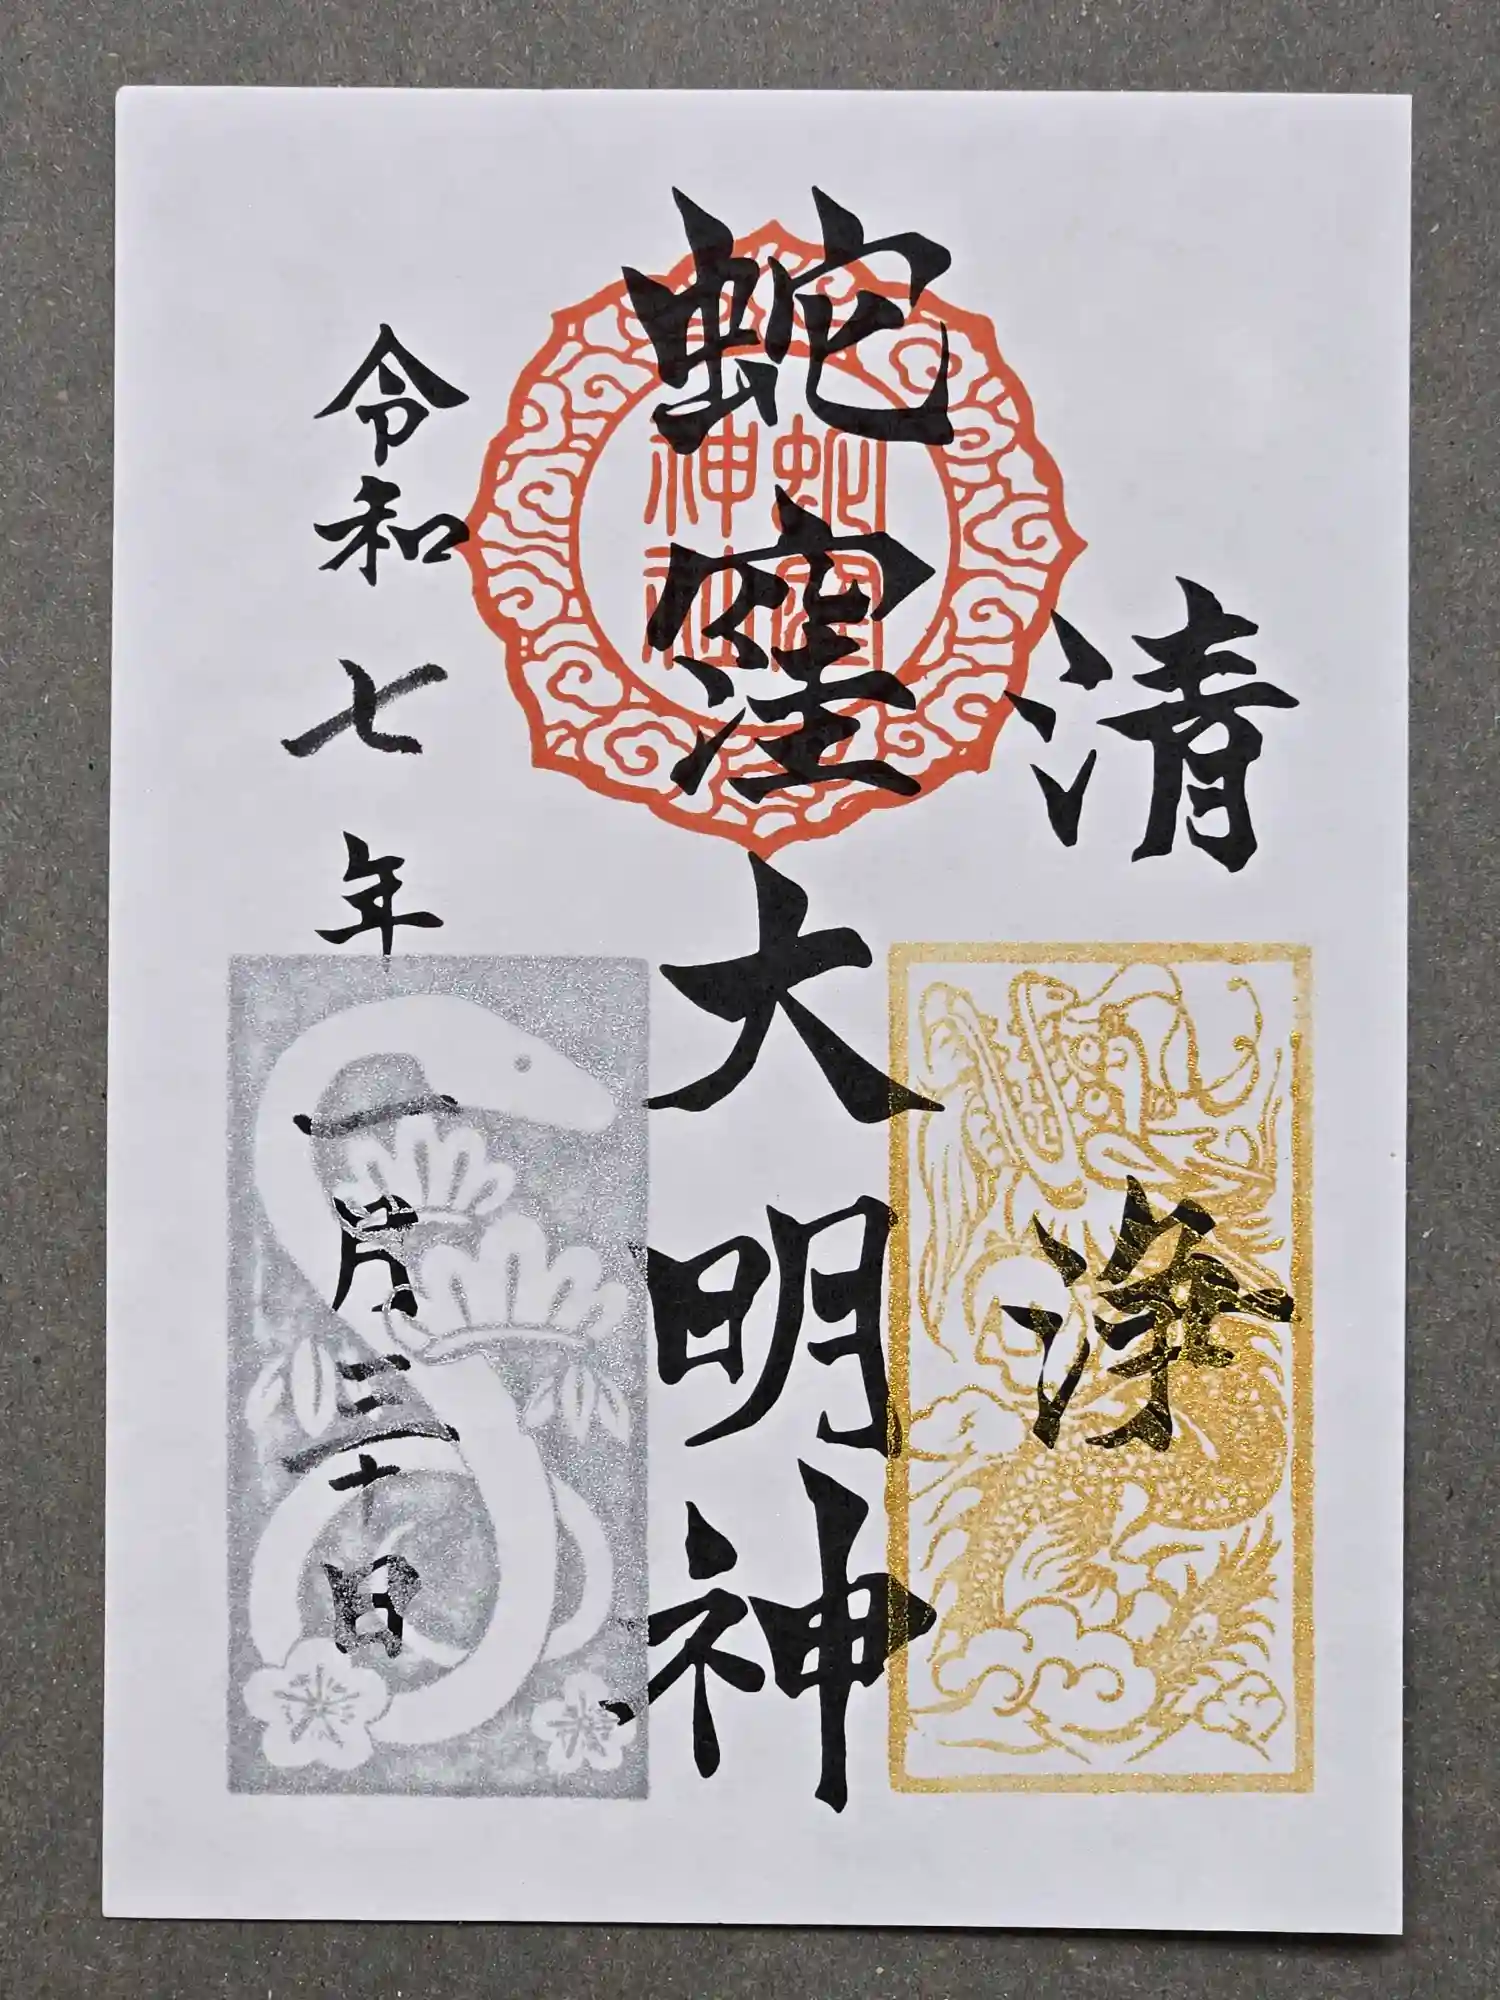 清浄
蛇窪大明神
蛇窪
神社
令和七年一月三十日